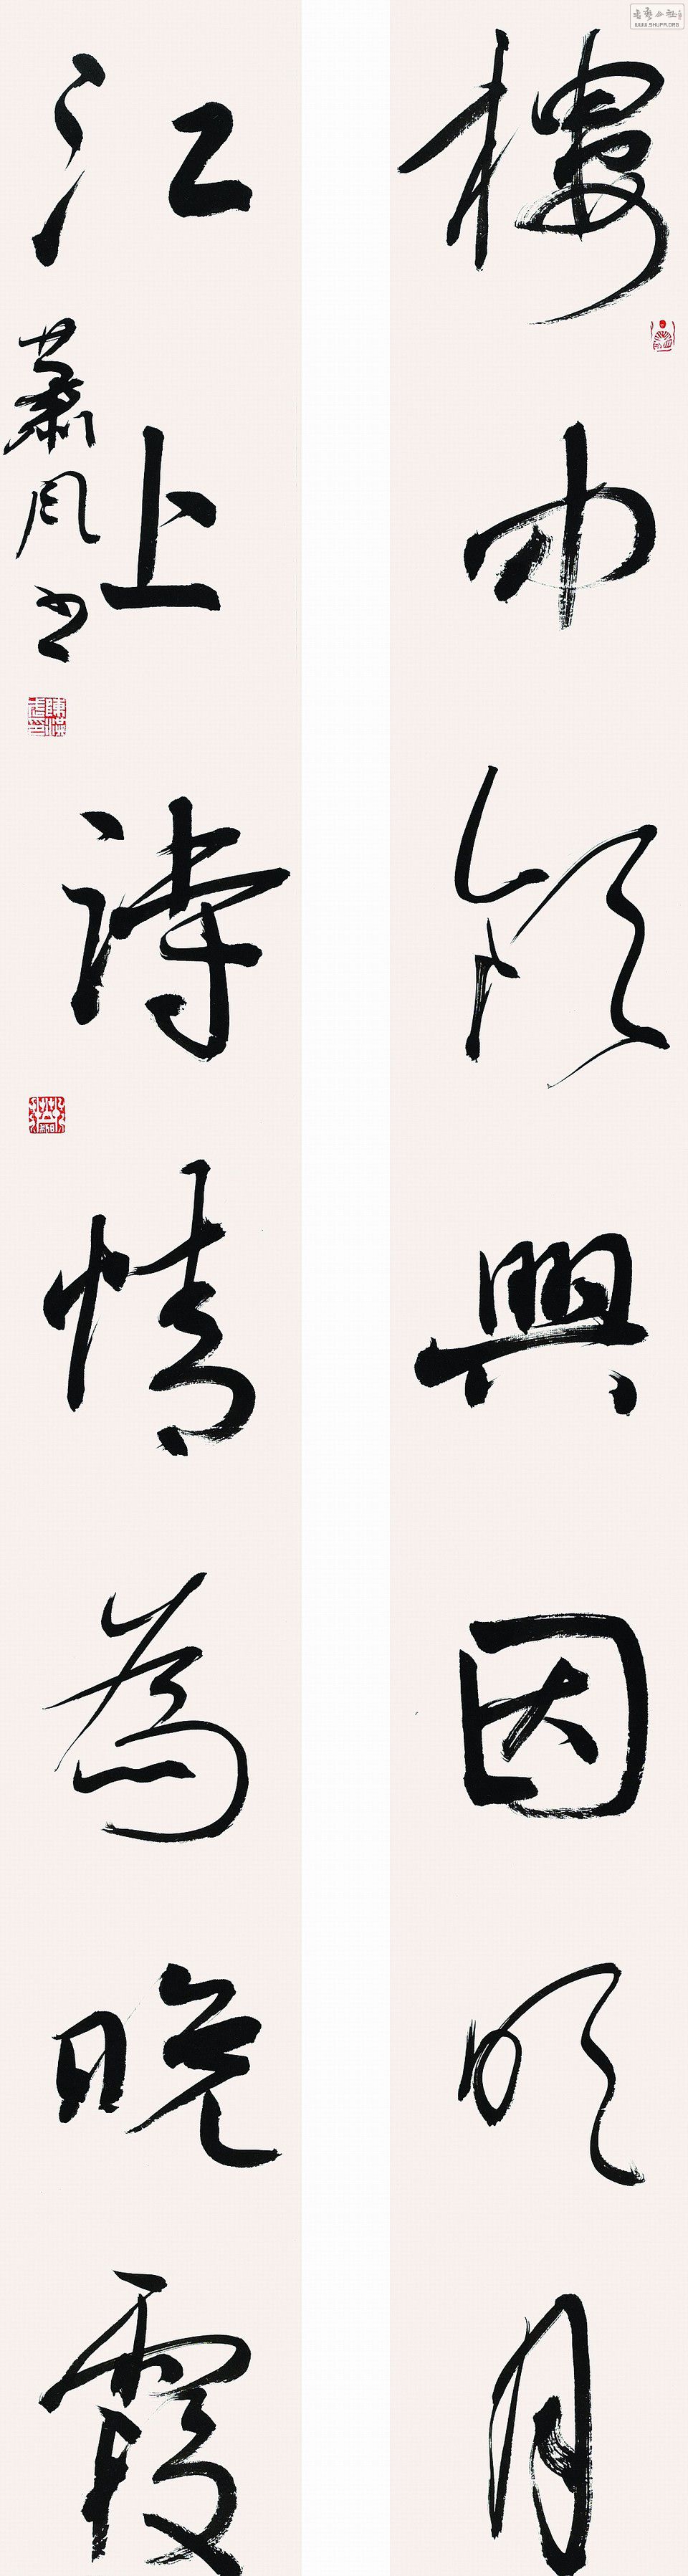 樓中飲興因明月
江上詩情為晚霞
蕭风书
WWW.SHUFA.ORG